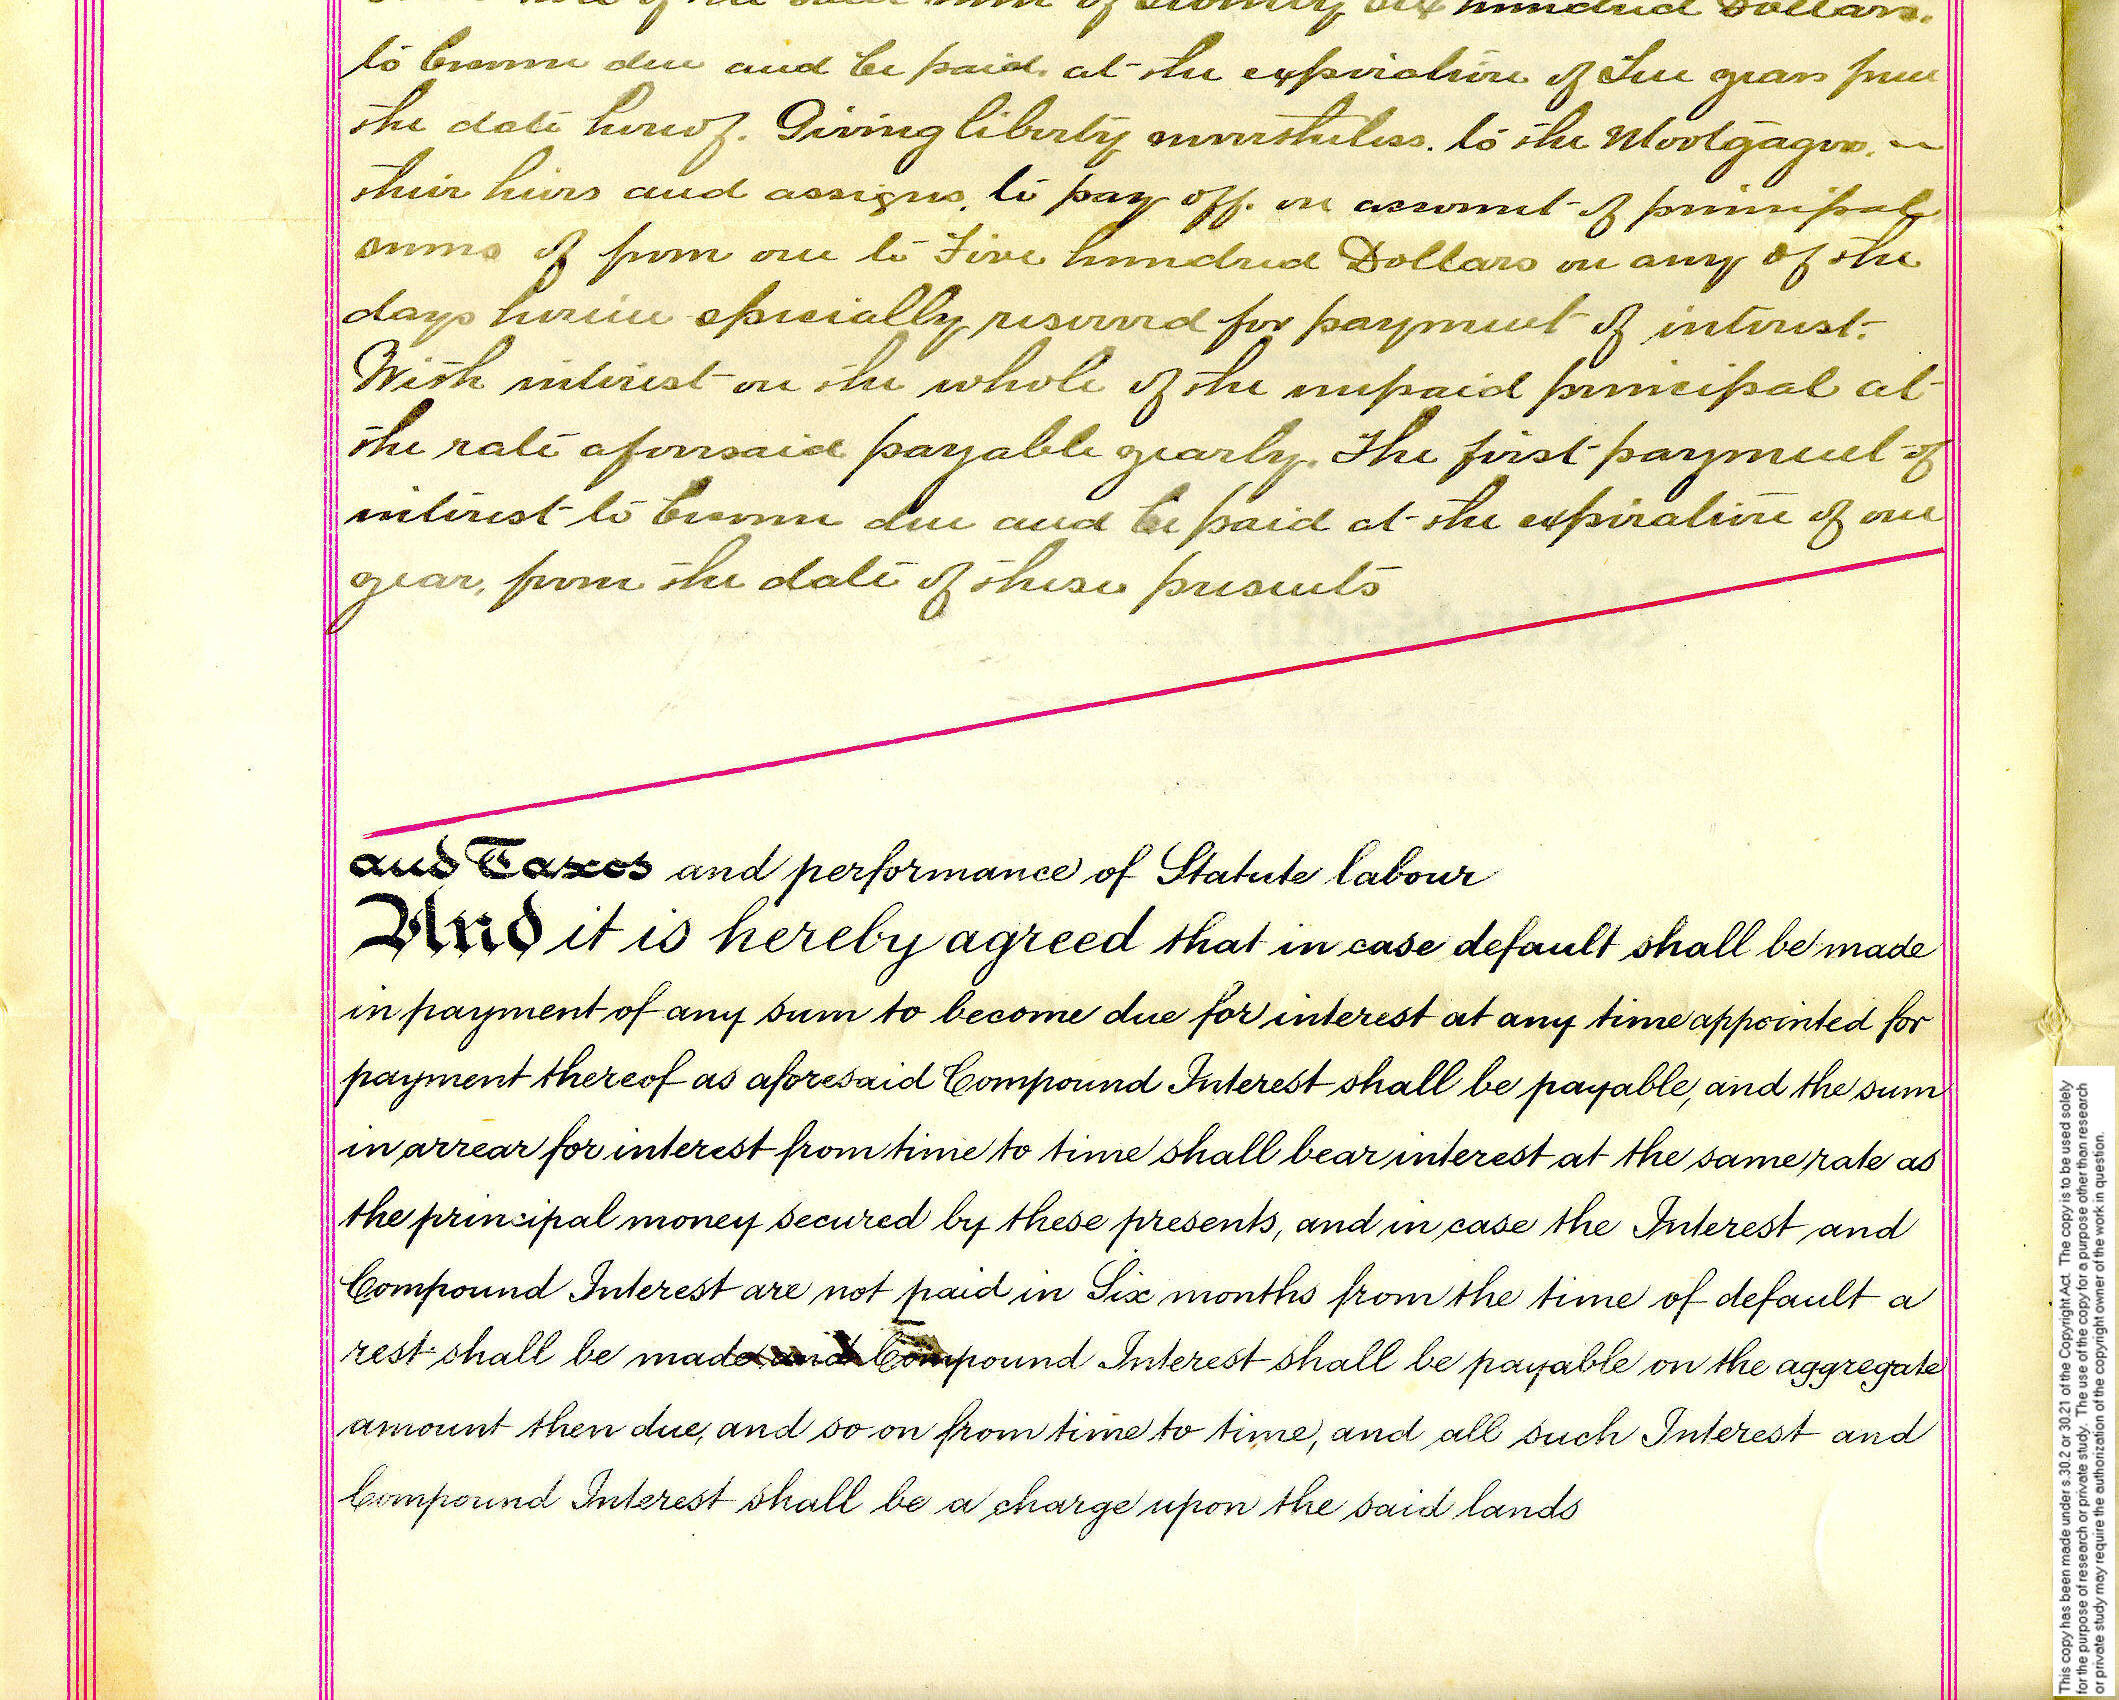 of the said sum of Twenty six hundred Dollars.
to become due and be paid. at the expiration of Five years from
the date hereof. Giving liberty nevertheless. to the Mortgagors.
their heirs and assigns, to pay off. on account of principal
sums of from one to Five hundred Dollars on any of the
days herein specially reserved for payment of interest.
With interest on the whole of the unpaid principal at
the rate aforesaid payable yearly. The first payment of
interest to become due and be paid at the expiration of one
year, from the date of these presents
and Taxes and performance of Statute labour
And it is hereby agreed that in case default shall be made
in payment of any sum to become due for interest at any time appointed for
payment thereof as aforesaid Compound Interest shall be payable, and the sum
in arrear for interest from time to time shall bear interest at the same rate as
the principal money secured by these presents, and in case the Interest and
Compound Interest are not paid in Six months from the time of default a
rest shall be made and Compound Interest shall be payable on the aggregate
amount then due, and so on from time to time, and all such Interest and
Compound Interest shall be a charge upon the said lands
This copy has been made under s.30.2 or 30.21 of the Copyright Act. The copy is to be used solely
for the purpose of research or private study. The use of the copy for a purpose other than research
or private study may require the authorization of the copyright owner of the work in question.